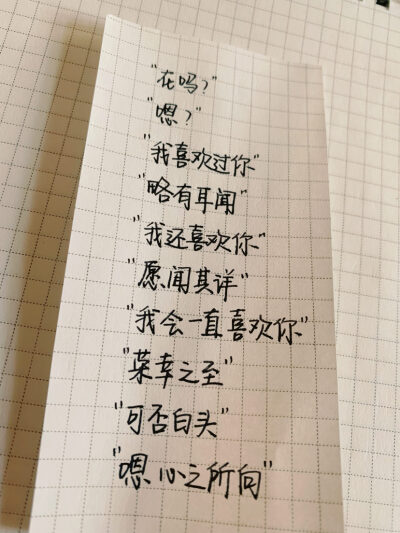 "在吗?"
"嗯?"
"我喜欢过你"
"略有耳闻"
"我还喜欢你"
"愿闻其详"
"我会一直喜欢你"
"荣幸之至"
"可否白头"
"嗯 心之所向"